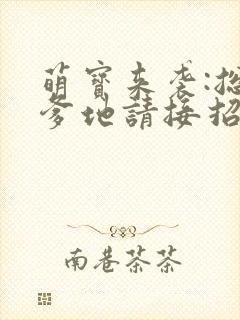 萌寶来袭:總
爹地請接招
南巷茶茶